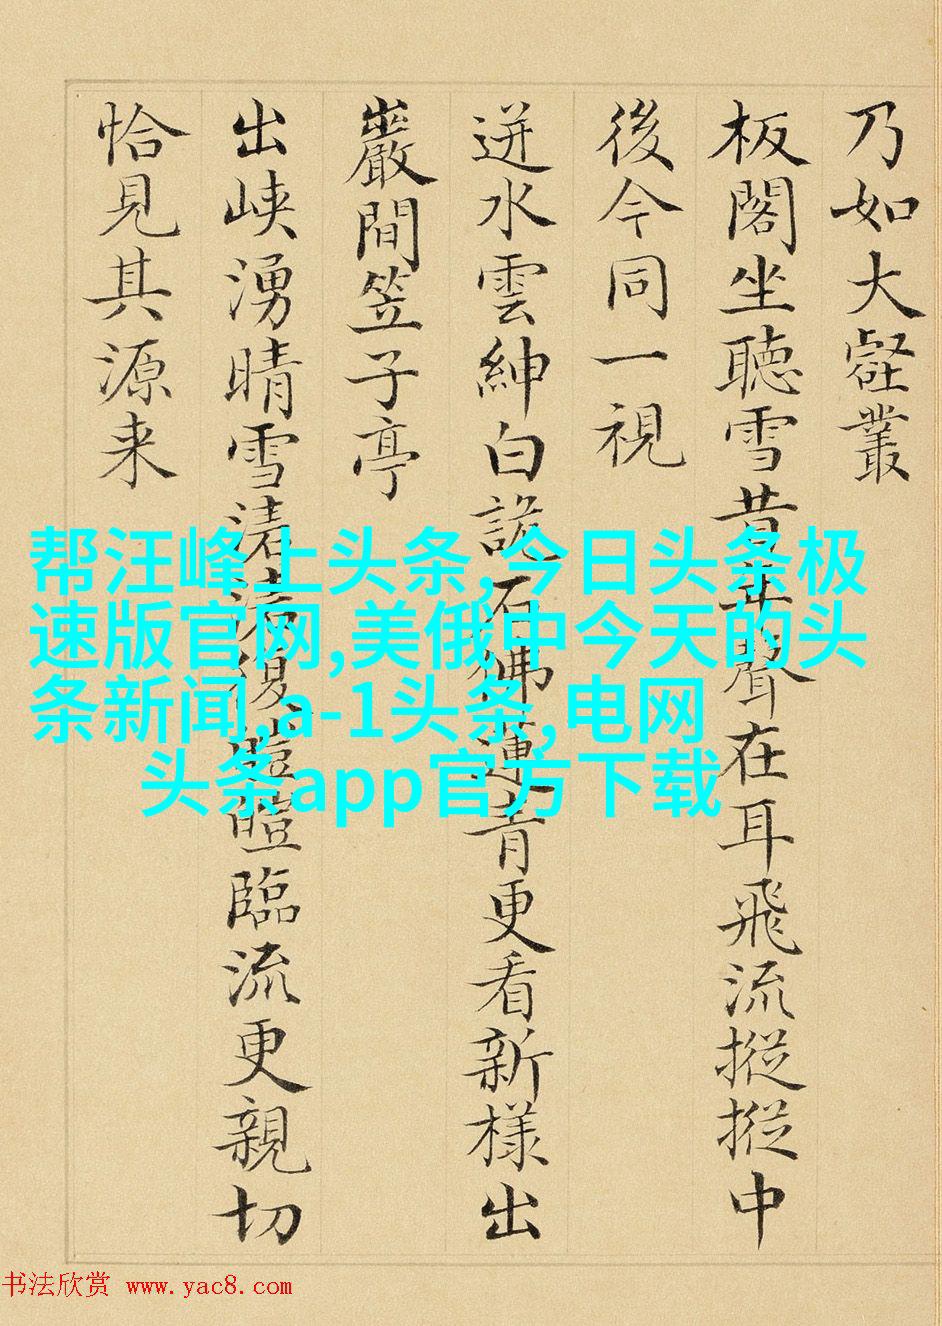 乃如大壑叢
板閣坐聽雪昔年聲在耳飛流摐摐中
後今同一視
迸水雲紳白詭石佛蓮青更看新樣出
巖間笠子亭
出峽湧晴雪渚清復皚皚臨流更親切
恰見其源来
帮汪峰上头条,今日头条极
速版官网,美俄中今天的头
条新闻,a-1头条,电网
头条app官方下载
书法欣赏 www.yac8.com